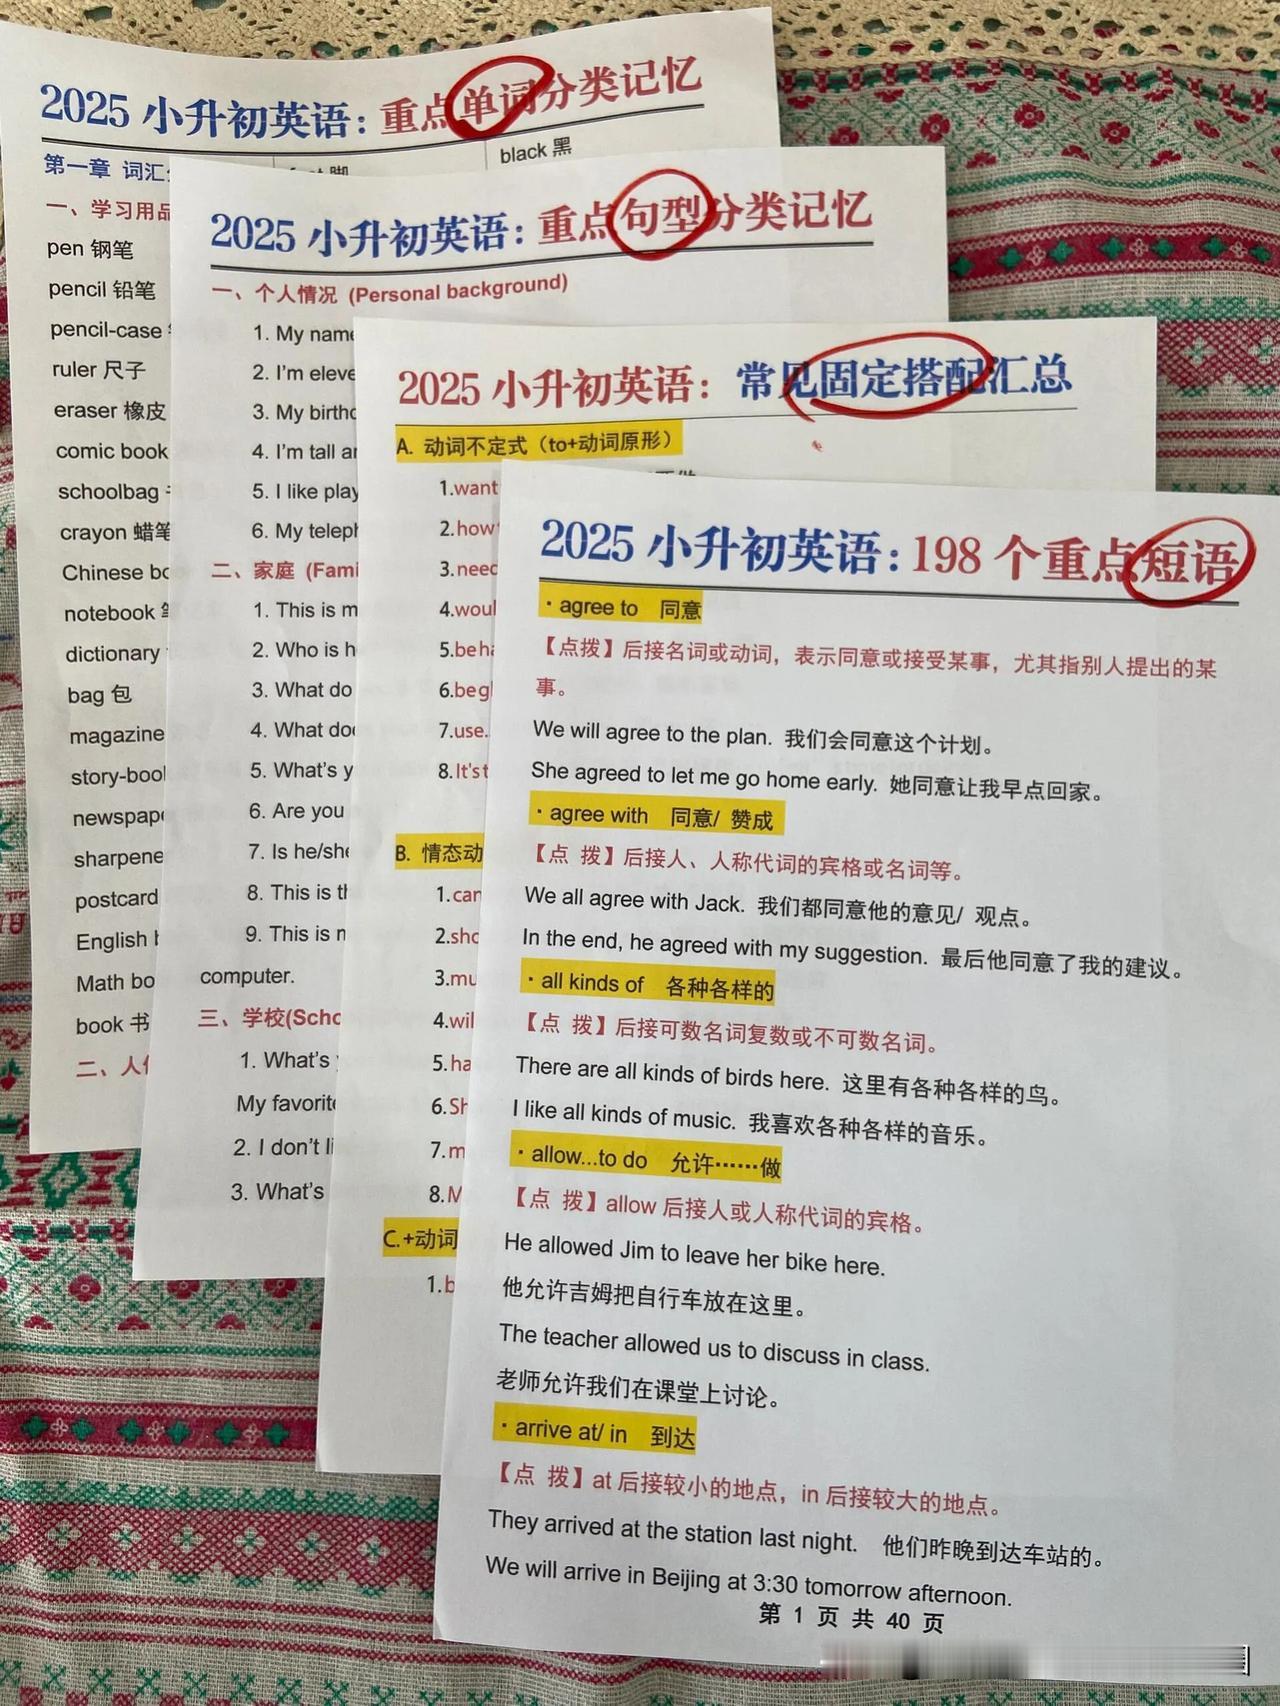 2025 小升初英语：重点单词分类记忆
第一章 词汇
black 黑
一、学习用品
pen 钢笔
pencil 铅笔
pencil-case
ruler 尺子
eraser 橡皮
comic book
schoolbag
crayon 蜡笔
Chinese
notebook
dictionary
bag 包
magazine
story-book
newspape
sharpene
postcard
English
Math bo
book 书
二、人
2025 小升初英语：重点句型分类记忆
一、个人情况 (Personal background)
1. My name
2. I'm eleve
3. My birthd
4. I'm tall an
5. I like play
6. My teleph
二、家庭 (Fami
1. This is m
2. Who is h
3. What do
4. What doe
5. What's y
6. Are you
7. Is he/she
8. This is th
9. This is m
computer.
三、学校(Scho
1. What's
My favorite
2. I don't li
3. What's
2025 小升初英语：常见固定搭配汇总
A. 动词不定式（to+动词原形）
1.want
2.how
3.need
4.woul
5.be ha
6.be gl
7.use.
8.It's t
B. 情态动
1.can
2.sho
3.mu
4.wil
5.ha
6.Sh
7.m
8.M
C.+动词
1.b
2025 小升初英语：198 个重点短语
· agree to 同意
【点拨】后接名词或动词，表示同意或接受某事，尤其指别人提出的某
事。
We will agree to the plan. 我们会同意这个计划。
She agreed to let me go home early. 她同意让我早点回家。
· agree with 同意/ 赞成
【点 拨】后接人、人称代词的宾格或名词等。
We all agree with Jack. 我们都同意他的意见/ 观点。
In the end, he agreed with my suggestion. 最后他同意了我的建议。
· all kinds of 各种各样的
【点 拨】后接可数名词复数或不可数名词。
There are all kinds of birds here. 这里有各种各样的鸟。
I like all kinds of music. 我喜欢各种各样的音乐。
· allow...to do 允许……做
【点 拨】allow 后接人或人称代词的宾格。
He allowed Jim to leave her bike here.
他允许吉姆把自行车放在这里。
The teacher allowed us to discuss in class.
老师允许我们在课堂上讨论。
· arrive at/ in 到达
【点 拨】at 后接较小的地点，in 后接较大的地点。
They arrived at the station last night. 他们昨晚到达车站的。
We will arrive in Beijing at 3:30 tomorrow afternoon.
第 1 页 共 40 页